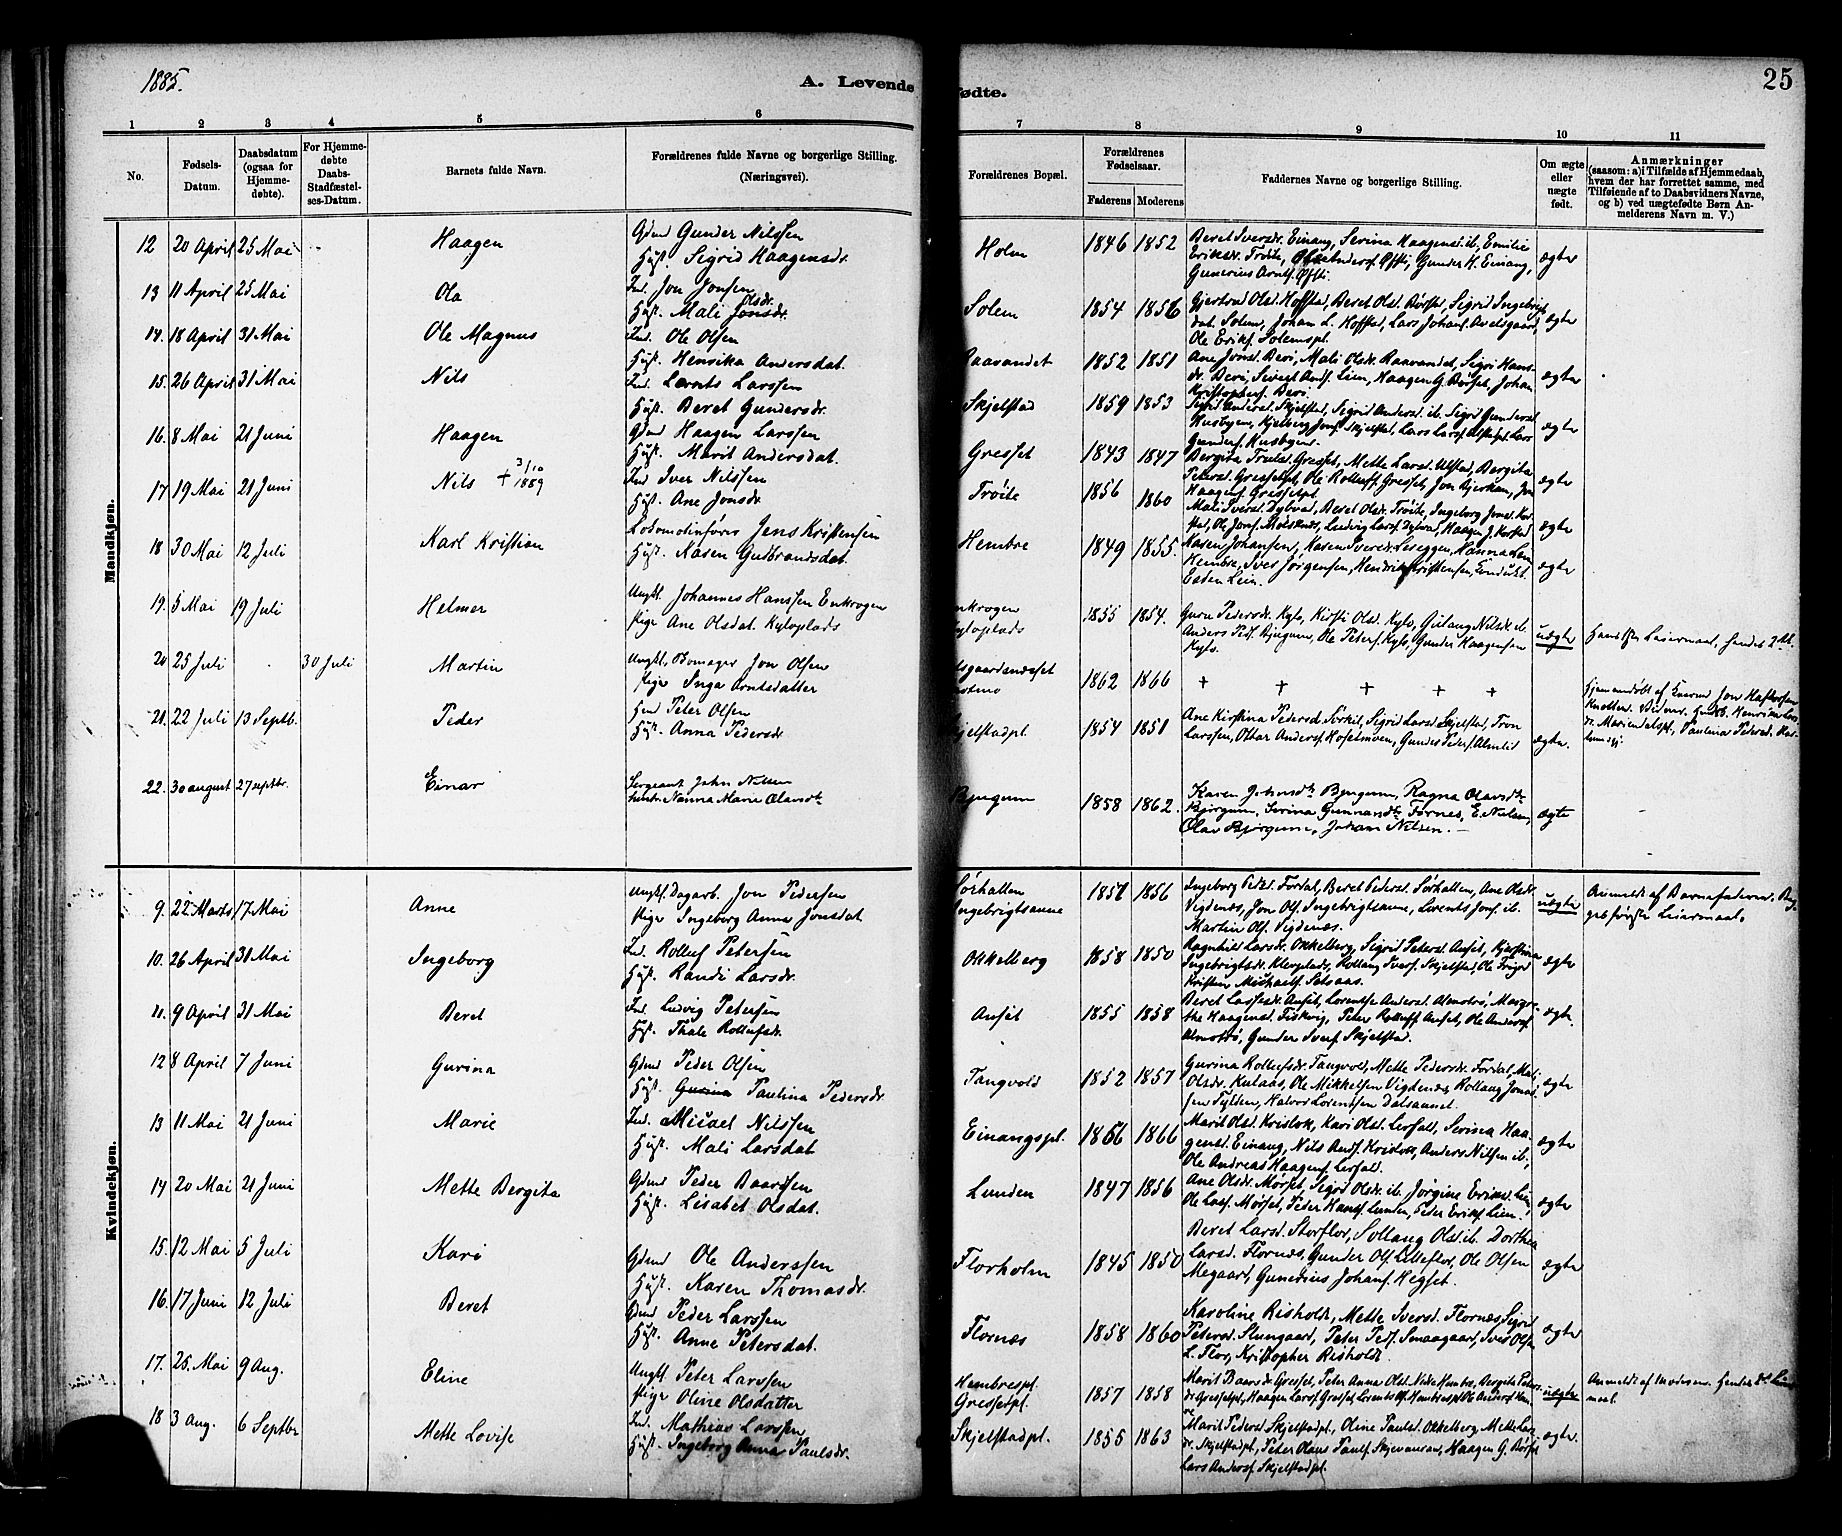 1885.
A. Levende
Fødte.
25
1 2 3 4 5 6 7 8 9 10 11
No.
Fødsels-Datum.
Daabsdatum (ogsaa for Hjemmedøbte).
For Hjemmedøbte Daabs-Stadfæstelses-Datum.
Barnets fulde Navn.
Forældrenes fulde Navne og borgerlige Stilling. (Næringsvei).
Forældrenes Bopæl.
Forældrenes Fødselsaar.
Faderens Moderens
Faddernes Navne og borgerlige Stilling.
Om ægte eller uægte født.
Anmærkninger (saasom: a) i Tilfælde af Hjemmedaab, hvem der har forrettet samme, med Tilføiende af to Daabsvidners Navne, og b) ved uægtefødte Børn Anmelderens Navn m. V.)
Mandkjøn.
12 20 April 25 Mai Haagen Gbmd Gunder Nilssen
Hust. Sigrid Haagensdr.
Holm 1846 1852 Beret Iversdr. Einang, Serina Haagensd. ib. Emilie
Eriksdr. Trøite, Gunder H. Einang,
Gunerius Arntf. Øfsti. ægte
13 11 April 25 Mai Ola Ind. Jon Jonsen
Hust. Mali Olsdr.
Solem 1854 1856 Gjertrud Olsd. Hoffstad, Beret Olsd. Børset, Sigrid Ingebrigts
dat. Solem, Johan L. Hofstad, Lars Johans.
Ole Eriks. Solemspl. ægte
14. 18 April 31 Mai Ole Magnus Ind. Ole Olsen
Hust. Henrika Andersdat.
Raavandet 1852 1851 Ane Jonsd. Beri, Mali Olsdr. Raavandet, Sigri Hans-
dr. Beri, Sivert Andf. Lien, Haagen G. Børset, Johan
Kristophers. Beri. ægte
15. 26 April 31 Mai Nils Ind. Lornts Larssen
Hust. Beret Gundersdr.
Skjelstad 1859 1853 Sigrid Andersd. Skjelstad, Sigrid Andersd. ib. Sigrid Gundersd.
Husbyen, Jonf. Skjelstad, Lars Larsf. Lars
Gundersf. Husbyen. ægte
16. 8 Mai 21 Juni Haagen Gbmd Haagen Larssen
Hust. Marit Andersdat.
Gresset 1843 1847 Bergita Trulsd. Gresset, Mette Larsd. Ulstad, Bergita
Petersd. Gressetpl, Ole Rolluff. Gresset, Jon Bjerkan, Jon
Haagenf. Gressetpl. ægte
17 19 Mai 21 Juni Nils + 3/10 1889 Ind Iver Nilssen
Hust. Ane Jonsdr
Trøite 1856 1860 Mali Iversd. Dybvad, Beret Olsdr. Trøite, Ingeborg Jonsd.
Ole Jonf. Ludvig Larsf. Dybvad, Haagen J. ægte
18 30 Mai 12 Juli Karl Kristian Lokomotivfører Jens Kristensen
Hust. Karen Gudbrandsdat.
Hembre 1849 1855. Karen Johansen, Karen Iversd. Leseggen, Hanna Lars
Hembre, Iver Jørgensen, Hendrik Kristensen,
Lien. ægte
19. 5 Mai 19 Juli Helmer Ungkl. Johannes Hanssen Enkrogen
Pige Ane Olsdat. Kyloplads
Enkrogen
Kyloplads
1855 1854. Guru Pedersdr. Kylo, Kirsti Olsd. Kylo, Nilsdr. ib.
Anders Pedf. Bjugum, Ole Petersf. Kylo, Gunder Haagensen
Kylo. uægte Hans Leiermaal, hendes 2det.
20 25 Juli 30 Juli Martin Ungkl. Jon Olsen
Pige Inga Arntsdatter
1862 1866 + + + + +
Hjemmedøbt af Jon
21. 22 Juli 13 Septb. Peder Hmd Peter Olsen
Hust. Anna Pedersdr
Skjelstadpl. 1854 1851 Ane Kirstina Pedersd. Sørkil, Sigrid Larsd. Skjelstad, Tron
Larssen, Ottar Andersf. Hosetmoen, Gunder Pedersf. Almlid ægte.
22. 30 august 27 septbr. Einar Sergeant John Nilsen
Hustr. Nanna Marie Olavsdt
Bjugum 1858 1862. Karen Johnsdt Bjugum, Ragna Olavsdt
Bjørgum, Serina Gunnarsdt Fornes, E. Nielsen,
Olav Bjørgum, Johan Nilsen. ægte
Kvindekjøn.
9. 22 Marts 17 Mai Anne Ungkl. Dagarb. Jon Pedersen
Pige Ingeborg Anna Jonsdat
Sørhallen
Ingebrigtsaune
1851 1856 Ingeborg Pedsd. Fordal, Beret Pedersd. Sørhallen, Ane Olsdr.
Vigdenæs, Jon Olf. Ingebrigtsaune, Lorents Jonf. ib.
Martin Olf. Vigdenæs. uægte Anmeldt af Barnefaderen. Beg-
ges første Leiermaal.
10. 26 April 31 Mai Ingeborg Ind. Rolluf Petersen
Hust. Randi Larsdr.
Okkelberg 1858 1850 Ragnhild Larsdr. Okkelberg, Sigrid Petersd. Auset, Kjerstina
Ingebrigtsdr. Klevplads, Rollaug Iversf. Skjelstad, Ole
Kristen Michaelf. Setsaas. ægte
11. 9 April 31 Mai Beret Ind. Ludvig Petersen
Hust. Thale Rollufsdr.
Auset 1855 1858 Beret Larsesdr. Auset, Lorentse Andersd. Almotrø, Margre-
the Haagensd. Fiskvig, Peter Rolluff. Auset, Ole Andersf.
Almotrø, Gunder Iversf. Skjelstad. ægte.
12 8 April 7 Juni Gurina Gbmd Peder Olsen
Hust. Gurina Paulina Pedersdr
Tangvold 1852 1857 Gurina Rollufsdr. Tangvold, Mette Pedersdr. Fordal, Mali
Olsdr. Kulaas, Ole Mikkelsen Vigdenæs, Rollaug Jonas-
sen Fylden, Halvor Lorentsen Dalsaunet. ægte
13 11 Mai 21 Juni Marie Ind. Micael Nilssen
Hust. Mali Larsdat
Einangspl. 1866 1866 Marit Olsd. Kirkvold, Kari Olsd. Lerfald, Serina Haa-
gensd. Einang, Nils Andf. Anders Nilsen ib.,
Ole Andreas Haagenf. Lerfald. ægte
14 20 Mai 21 Juni Mette Bergita Gbmd Peder Baardsen
Hust. Lisabet Olsdat.
Lunden 1847 1856 Ane Olsdr. Mørset, Sigrid Olsdr. ib. Jørgine Eriksd. Lien,
Ole Larsf. Mørset, Peter Hansf. Lunden, Peter Eriksf. Lien. ægte
15. 12 Mai 5 Juli Kari Gbmd Ole Anderssen
Hust. Karen Thomasdr.
Florholm 1845 1850 Beret Larsd. Storflor, Sollaug Olsd. ib. Dorthea
Larsd. Flornæs, Gunder Olf. Lilleflor, Ole Olsen
Megaard, Gunerius Johanf. Hegset. ægte
16. 17 Juni 12 Juli Beret Gbmd Peder Larssen
Hust. Anne Petersdat.
Flornæs 1858 1860 Karoline Risholdt, Mette Iversd. Flornæs, Sigrid
Petersd. Stungaard, Peter Pedf. Smaagaard, Iver Olsen
L. Flor, Kristopher Risholdt. ægte
17. 25. Mai 9 Aug. Eline Ungkl. Peter Larssen
Pige Oline Olsdatter
Hembrespl.
Gressetpl.
1857 1858 Marit Baarsdr Gresset, Peter Anna Olsd. Hembre, Bergita Peters-
dr Gressetpl, Haagen Larsf. Gresset, Lorents Olf. Hembrespl, Ole Andersf. uægte Anmeldt af Moderen. Hendes 2det Leier-
maal.
18 3 Aug. 6 Septbr Mette Lovise Ind. Mathias Larssen
Hust. Ingeborg Anna Paulsdr.
Skjelstadpl. 1855 1863 Marit Pedersd. Skjelstadpl., Oline Paulsd. Okkelberg, Mette Lars-
dr. Skjelstadpl., Peter Olaus Paulf. Haagen G. Børset
Lars Andersf. Skjelstadpl. ægte.